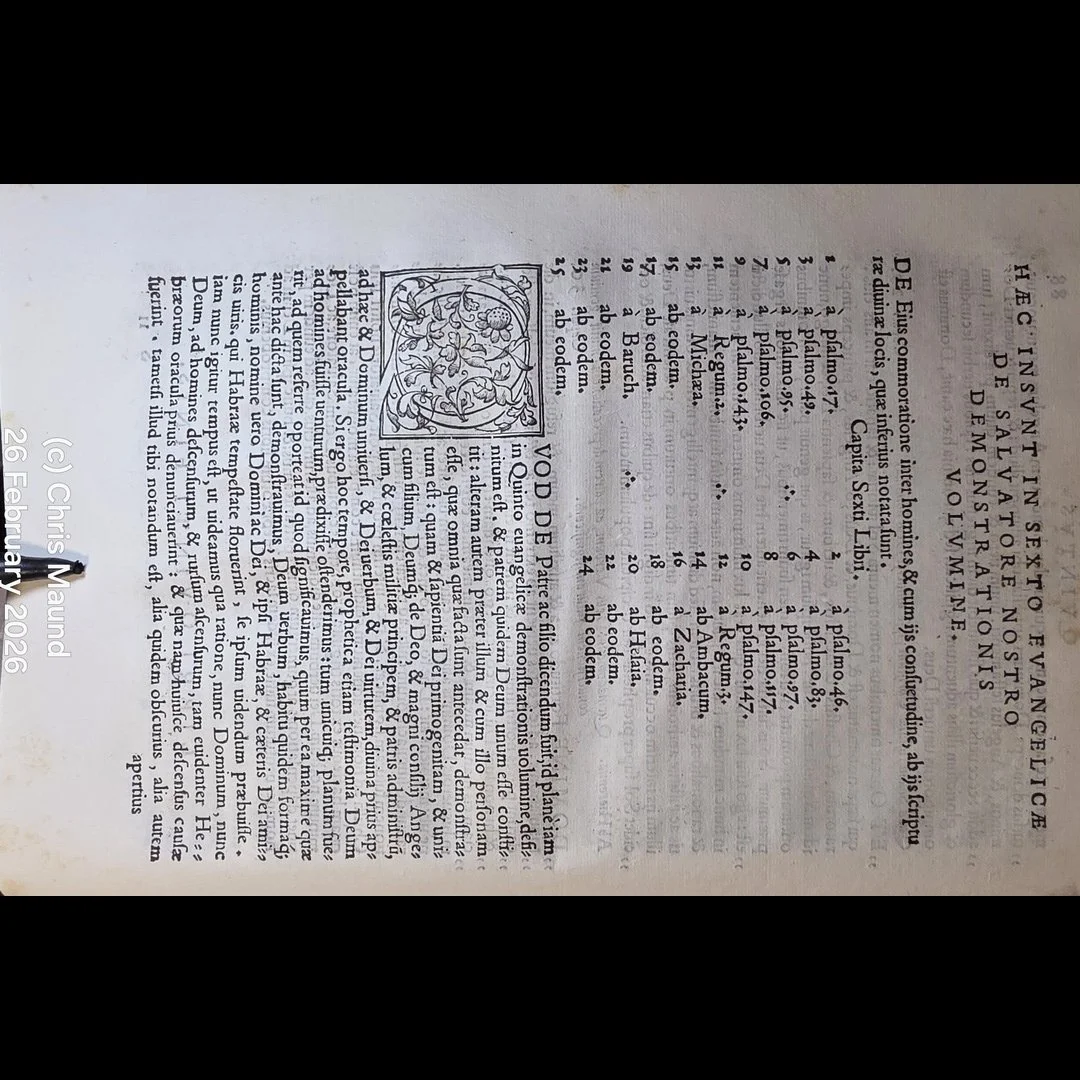 HÆC INSVNT IN SEXTO EVANGELICÆ
DE SALVATORE NOSTRO
DEMONSTRATIONIS
VOLVMINE.
DE Eius commoratione inter homines, & cum ijs conſuetudine, ab ijs ſcriptu
ræ diuinæ locis, quæ inferius notata ſunt.
Capita Sexti Libri.
1 à pſalmo.17. 2 à pſalmo.46.
3 à pſalmo.49. 4 à pſalmo.83.
5 à pſalmo.95. 6 à pſalmo.97.
7 à pſalmo.106. 8 à pſalmo.117.
9 à pſalmo.143. 10 à pſalmo.147.
11 à Regum.2. 12 à Regum.3.
13 à Michæa. 14 ab Ambacum.
15 ab eodem. 16 à Zacharia.
17 ab eodem. 18 ab eodem.
19 à Baruch. 20 ab Heſaia.
21 ab eodem. 22 ab eodem.
23 ab eodem. 24 ab eodem.
25 ab eodem.
QVOD DE Patre ac filio dicendum fuit, id planè iam
in Quinto euangelicæ demonſtrationis uolumine, defi⸗
nitum eſt. & patrem quidem Deum unum eſſe conſtti⸗
tit: alteram autem præter illum & cum illo perſonam
eſſe, quæ omnia quæ facta ſunt antecedat, demonſtra⸗
tum eſt: quam & ſapientiā Dei primogenitam, & uni⸗
cum filium, Deumq; de Deo, & magni conſilij Ange⸗
lum, & cœleſtis militiæ principem, & patris adminiſtrū,
ad hæc & Dominum uniuerſi, & Dei uerbum, & Dei uirtutem, diuina prius ap⸗
pellabant oracula. Si ergo hoc tempore, prophetica etiam teſtimonia Deum
ad homines fuiſſe uenturum, prædixiſſe oſtenderimus: tum unicuiq; planum fue⸗
rit, ad quem referre oporteat id quod ſignificauimus, quum per ea maxime quæ
ante hac dicta ſunt, demonſtrauimus, Deum uerbum, habitu quidem formaq;
hominis, nomine uero Domini ac Dei, & ipſi Habraæ, & cæteris Dei ami⸗
cis uiris. qui Habraæ tempeſtate floruerint, ſe ipſum uidendum præbuiſſe.
iam nunc igitur tempus eſt, ut uideamus qua ratione, nunc Dominum, nunc
Deum, ad homines deſcenſurum, & rurſum aſcenſurum, tam euidenter He⸗
bræorum oracula prius denunciauerint: & quæ nam huiuſce deſcenſus cauſæ
fuerint. tametſi illud tibi notandum eſt, alia quidem obſcurius, alia autem
apertius
(c) Chris Maund
26 February 2026